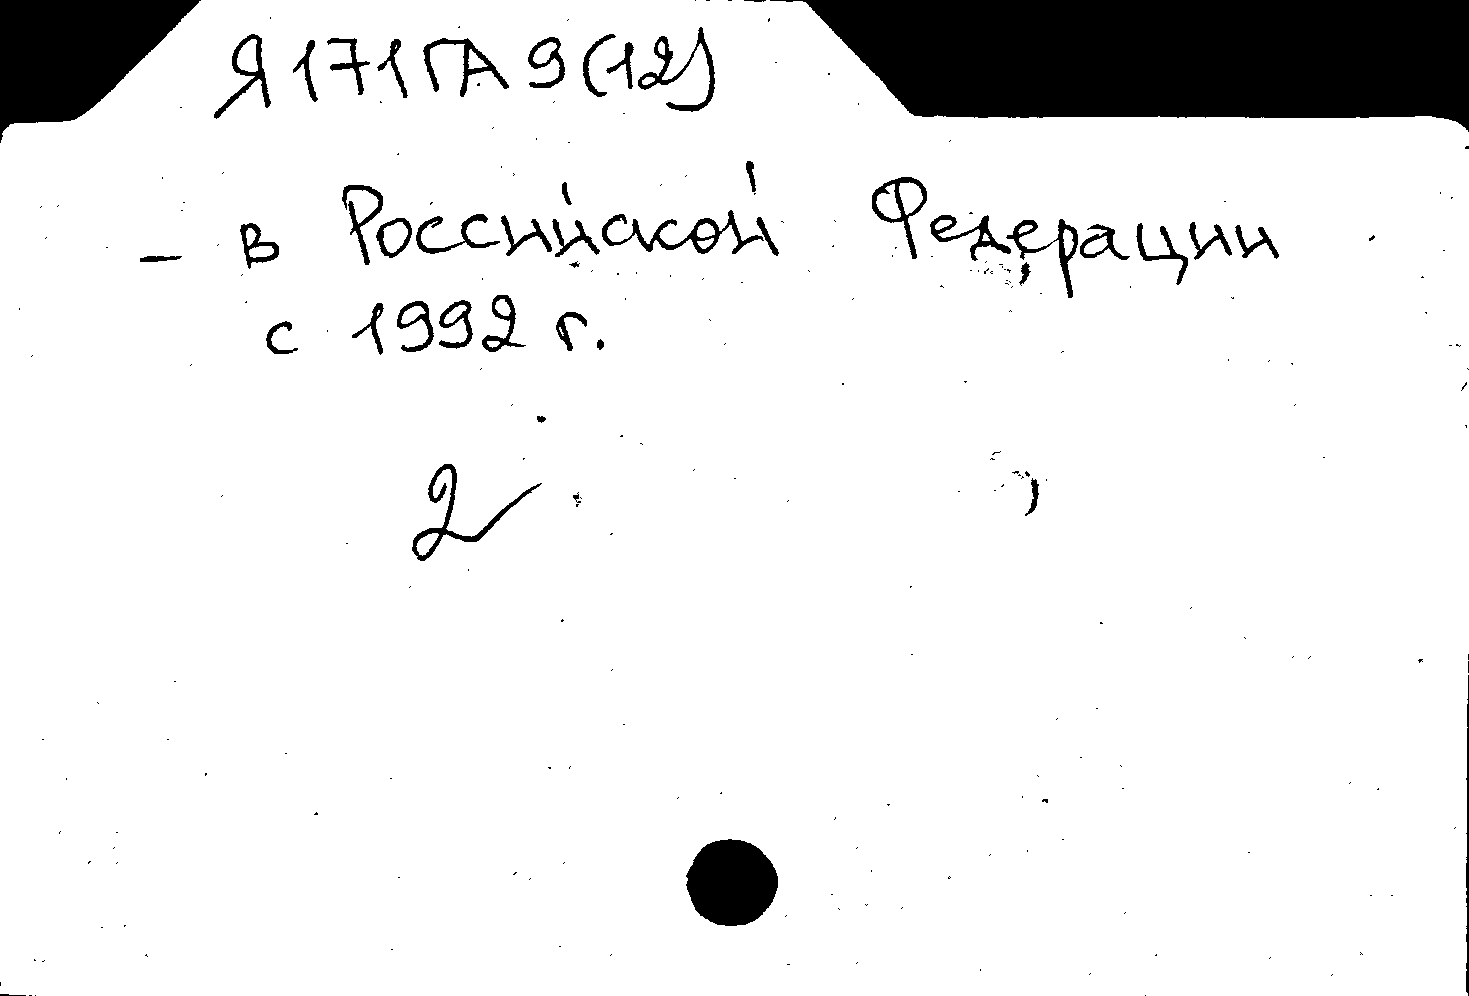 Я171ГА9(12)
– в Российской Федерации
с 1992 г.
2